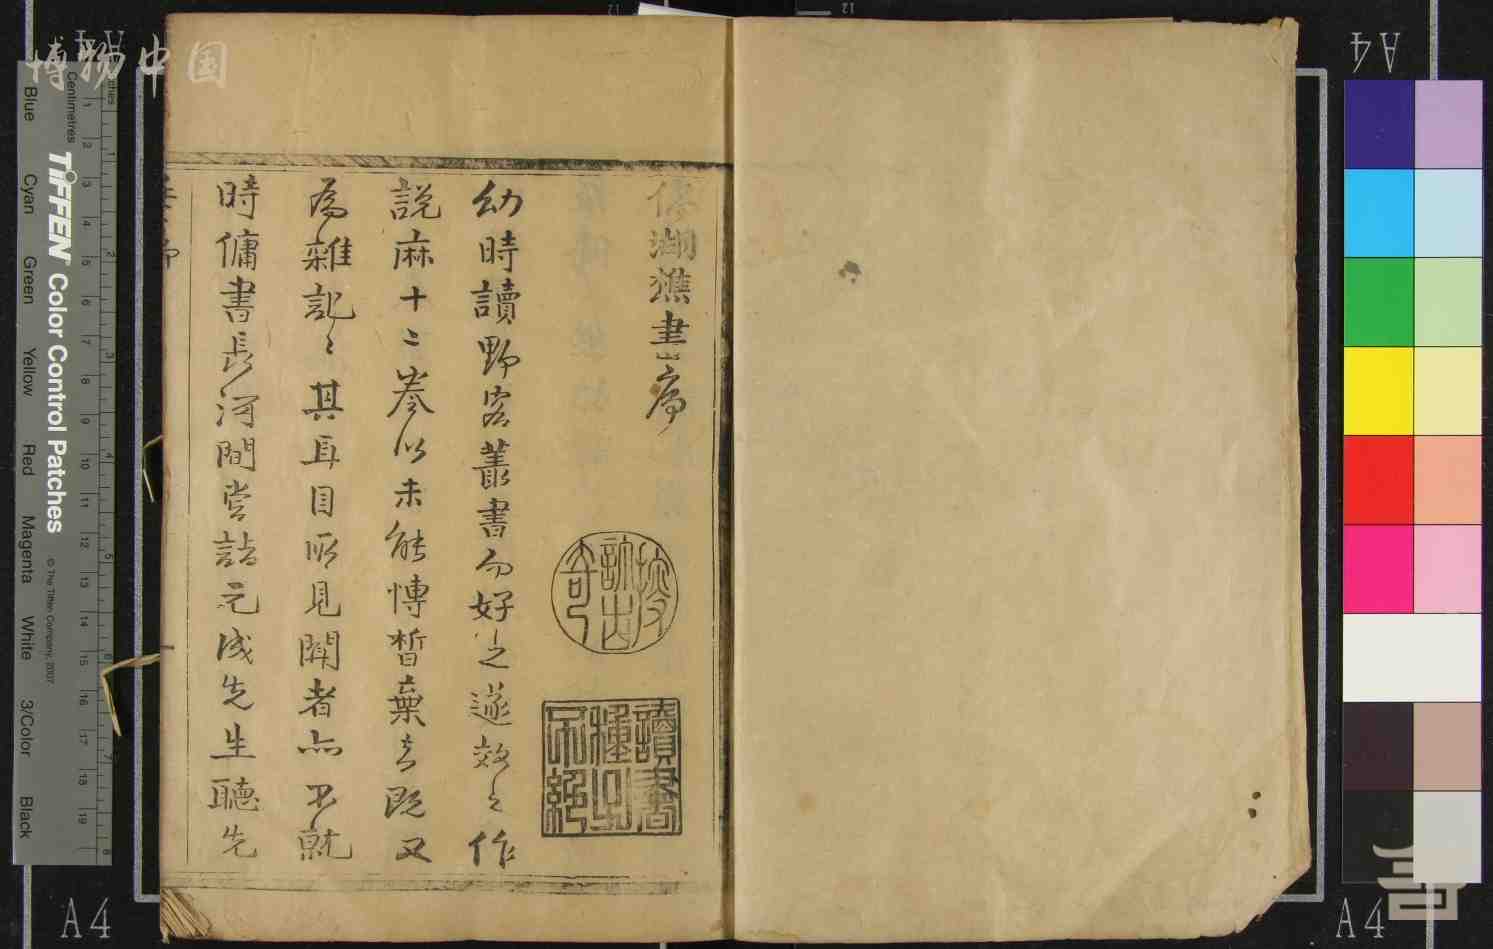 倘湖樵書序
讀書種子不絕
幼時讀野客叢書而好之遂效之作
說麻十二卷以未能博暫棄去既又
為雜記〻其耳目所見聞者亦不就
時傭書長河間嘗詰元成先生聽先
博物中国
TIFFEN Color Control Patches
© The Tiffen Company, 2007
Centimetres
Blue Cyan Green Yellow Red Magenta White 3/Color Black
A4
A4
A4
A4